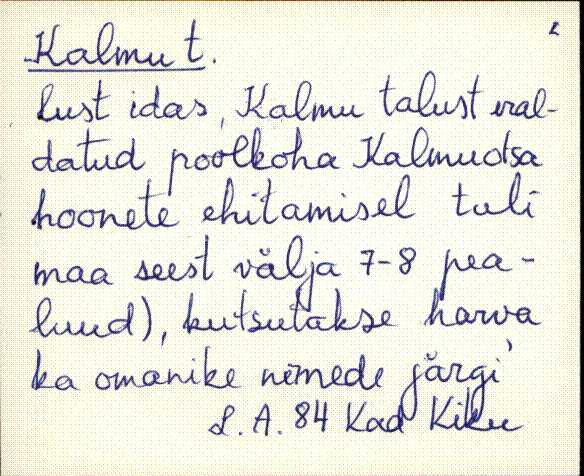 2
Kalmu t.
lust idas, Kalmu talust eral-
datud poolkoha Kalmuotsa
hoonete ehitamisel tuli
maa seest välja 7-8 pea-
luud), kutsutakse harva
ka omanike nimede järgi'
L. A. 84 Kad Kiku